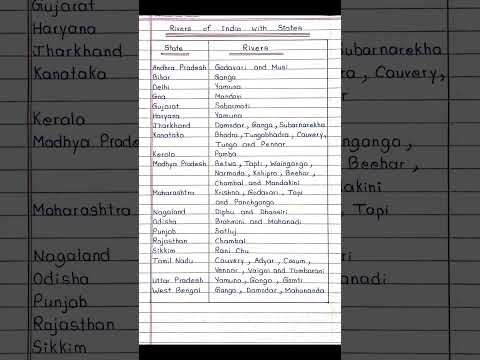 Gujarat
Haryana
Jharkhand
Kanataka
Kerala
Madhya Prade
Maharashtra
Nagaland
Odisha
Punjab
Rajasthan
Sikkim
Rivers of India with States
State Rivers
Andhra Pradesh Godavari and Musi
Bihar Ganga
Delhi Yamuna
Goa Mandovi
Gujarat Sabarmati
Haryana Yamuna
Jharkhand Damodar, Ganga, Subarnarekha
Kanataka Bhadra, Tungabhadra, Cauvery,
Tunga and Pennar
Kerala Pamba
Madhya Pradesh Betwa, Tapti, Wainganga,
Narmada, Kshipra, Beehar,
Chambal and Mandakini
Maharashtra Krishna, Godavari, Tapi
and Panchganga
Nagaland Diphu and Dhansiri
Odisha Brahmini and Mahanadi
Punjab Satluj
Rajasthan Chambal
Sikkim Rani Chu
Tamil Nadu Cauvery, Adyar, Cooum,
Vennar, Vaigai and Tambarani
Uttar Pradesh Yamuna, Ganga, Gomti
West Bengal Ganga, Damodar, Mahananda
Subarnarekha
Cauvery,
nganga,
Beehar,
kini
Tapi